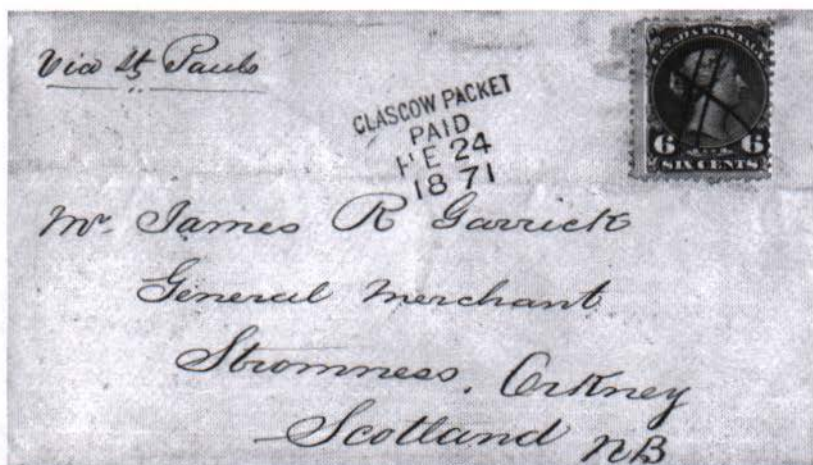 Via St Pauls
CANADA POSTAGE
6 6
SIX CENTS
GLASGOW PACKET
PAID
FE 24
1871
Mr. James R Garrick
General Merchant
Stromness, Orkney
Scotland NB